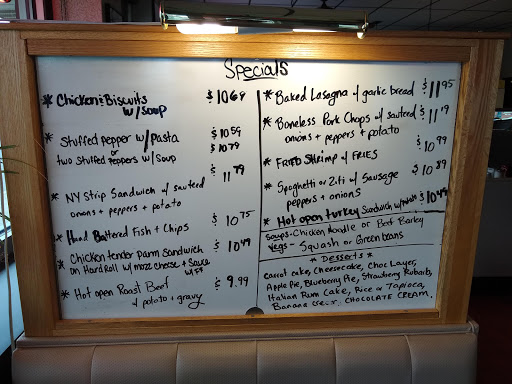 Specials
* Chicken & Biscuits $ 10 69
w/ soup
* Stuffed pepper w/ Pasta $ 10 59
or
two stuffed peppers w/ soup $ 10 79
* NY Strip Sandwich w/ sauteed $ 11 79
onions + peppers + potato
* Hand Battered Fish + Chips $ 10 75
* Chicken tender parm sandwich $ 10 49
on Hard Roll w/ mozz cheese + Sauce
w/ FF
* Hot open Roast Beef $ 9.99
w/ potato + gravy
* Baked Lasagna w/ garlic bread $ 11 95
* Boneless Pork Chops w/ sauteed $ 11 19
onions + peppers + potato
* FRIED Shrimp w/ FRIES $ 10 99
* Spaghetti or Ziti w/ Sausage $ 10 89
peppers + onions
* Hot open turkey Sandwich w/ $ 10 49
Soups - Chicken Noodle or Beef Barley
Vegs - Squash or Green beans
* Desserts *
Carrot cake, Cheesecake, Choc Layer,
Apple Pie, Blueberry Pie, Strawberry Rubarb,
Italian Rum Cake, Rice or Tapioca,
Banana CHOCOLATE CREAM,